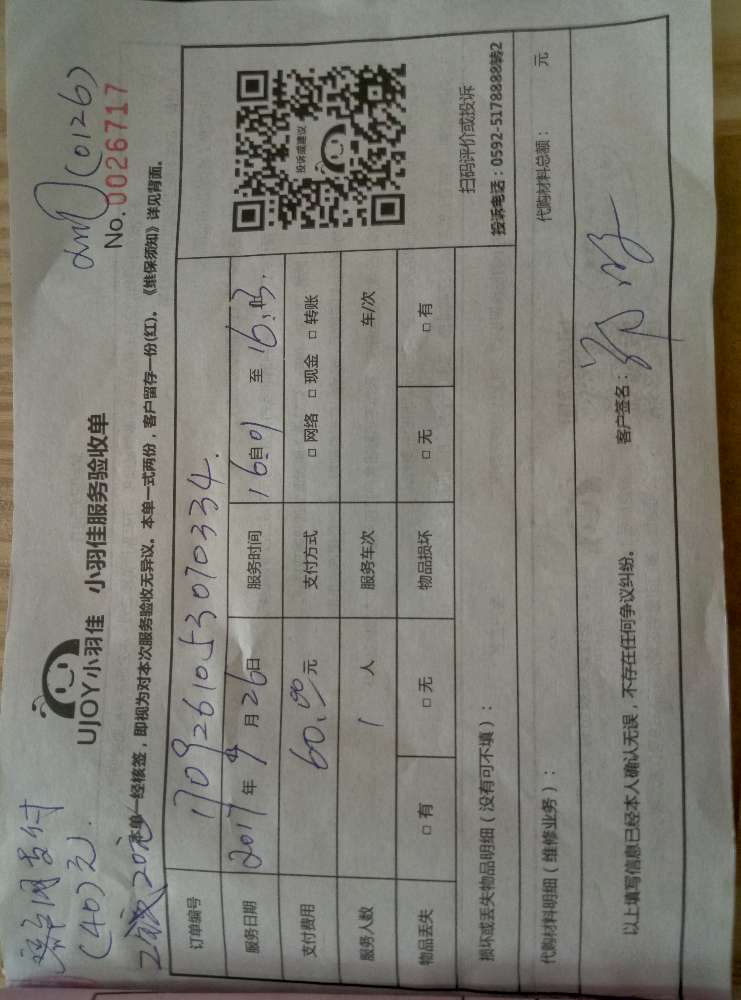 (40)元.
20元
(0126)
No. 0026717
UJOY小羽佳 小羽佳服务验收单
本单一经核签，即视为对本次服务验收无异议。本单一式两份，客户留存一份(红)。《维保须知》详见背面。
订单编号 1709261053070334.
投诉或建议
服务日期 2017年9月26日 服务时间 16自:01 至 16:03.
支付费用 60.00元 支付方式 □网络 □现金 □转账
服务人数 1 人 服务车次 车/次
物品丢失 □有 □无 物品损坏 □无 □有
扫码评价或投诉
投诉电话：0592-5178888转2
损坏或丢失物品明细（没有可不填）：
代购材料明细（维修业务）： 代购材料总额： 元
以上填写信息已经本人确认无误，不存在任何争议纠纷。 客户签名：